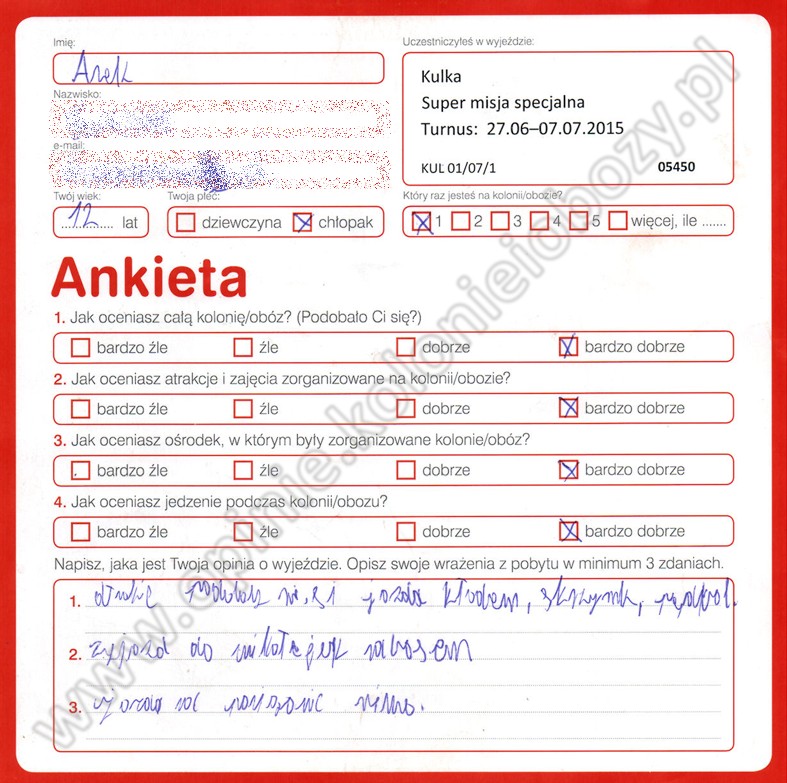 Imię:
Arek
Uczestniczyłeś w wyjeździe:
Kulka
Super misja specjalna
Turnus: 27.06–07.07.2015
KUL 01/07/1 05450
Nazwisko:
e-mail:
Twój wiek:
12 lat
Twoja płeć:
dziewczyna chłopak
Który raz jesteś na kolonii/obozie?
1 2 3 4 5 więcej, ile .......
Ankieta
1. Jak oceniasz całą kolonię/obóz? (Podobało Ci się?)
bardzo źle źle dobrze bardzo dobrze
2. Jak oceniasz atrakcje i zajęcia zorganizowane na kolonii/obozie?
bardzo źle źle dobrze bardzo dobrze
3. Jak oceniasz ośrodek, w którym były zorganizowane kolonie/obóz?
bardzo źle źle dobrze bardzo dobrze
4. Jak oceniasz jedzenie podczas kolonii/obozu?
bardzo źle źle dobrze bardzo dobrze
Napisz, jaka jest Twoja opinia o wyjeździe. Opisz swoje wrażenia z pobytu w minimum 3 zdaniach.
1.
2. do
3.
www.opinie.kolonieiobozy.pl